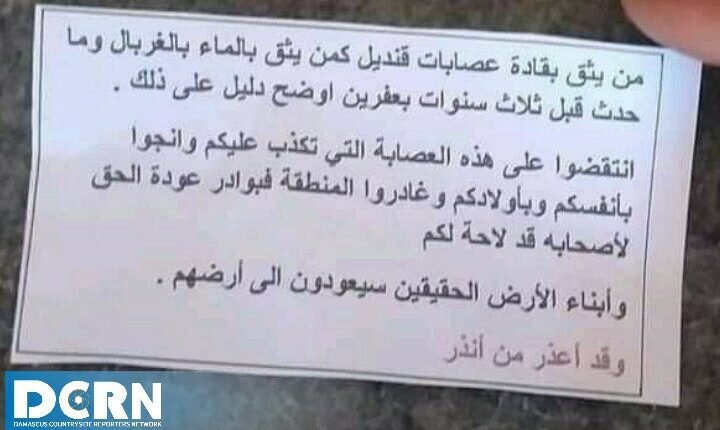 من يثق بقادة عصابات قنديل كمن يثق بالماء بالغربال وما
حدث قبل ثلاث سنوات بعفرين اوضح دليل على ذلك .
انتقضوا على هذه العصابة التي تكذب عليكم وانجوا
بأنفسكم وبأولادكم وغادروا المنطقة فبوادر عودة الحق
لأصحابه قد لاحة لكم
وأبناء الأرض الحقيقين سيعودون الى أرضهم .
وقد أعذر من أنذر
DCRN
DAMASCUS COUNTRYSIDE REPORTERS NETWORK